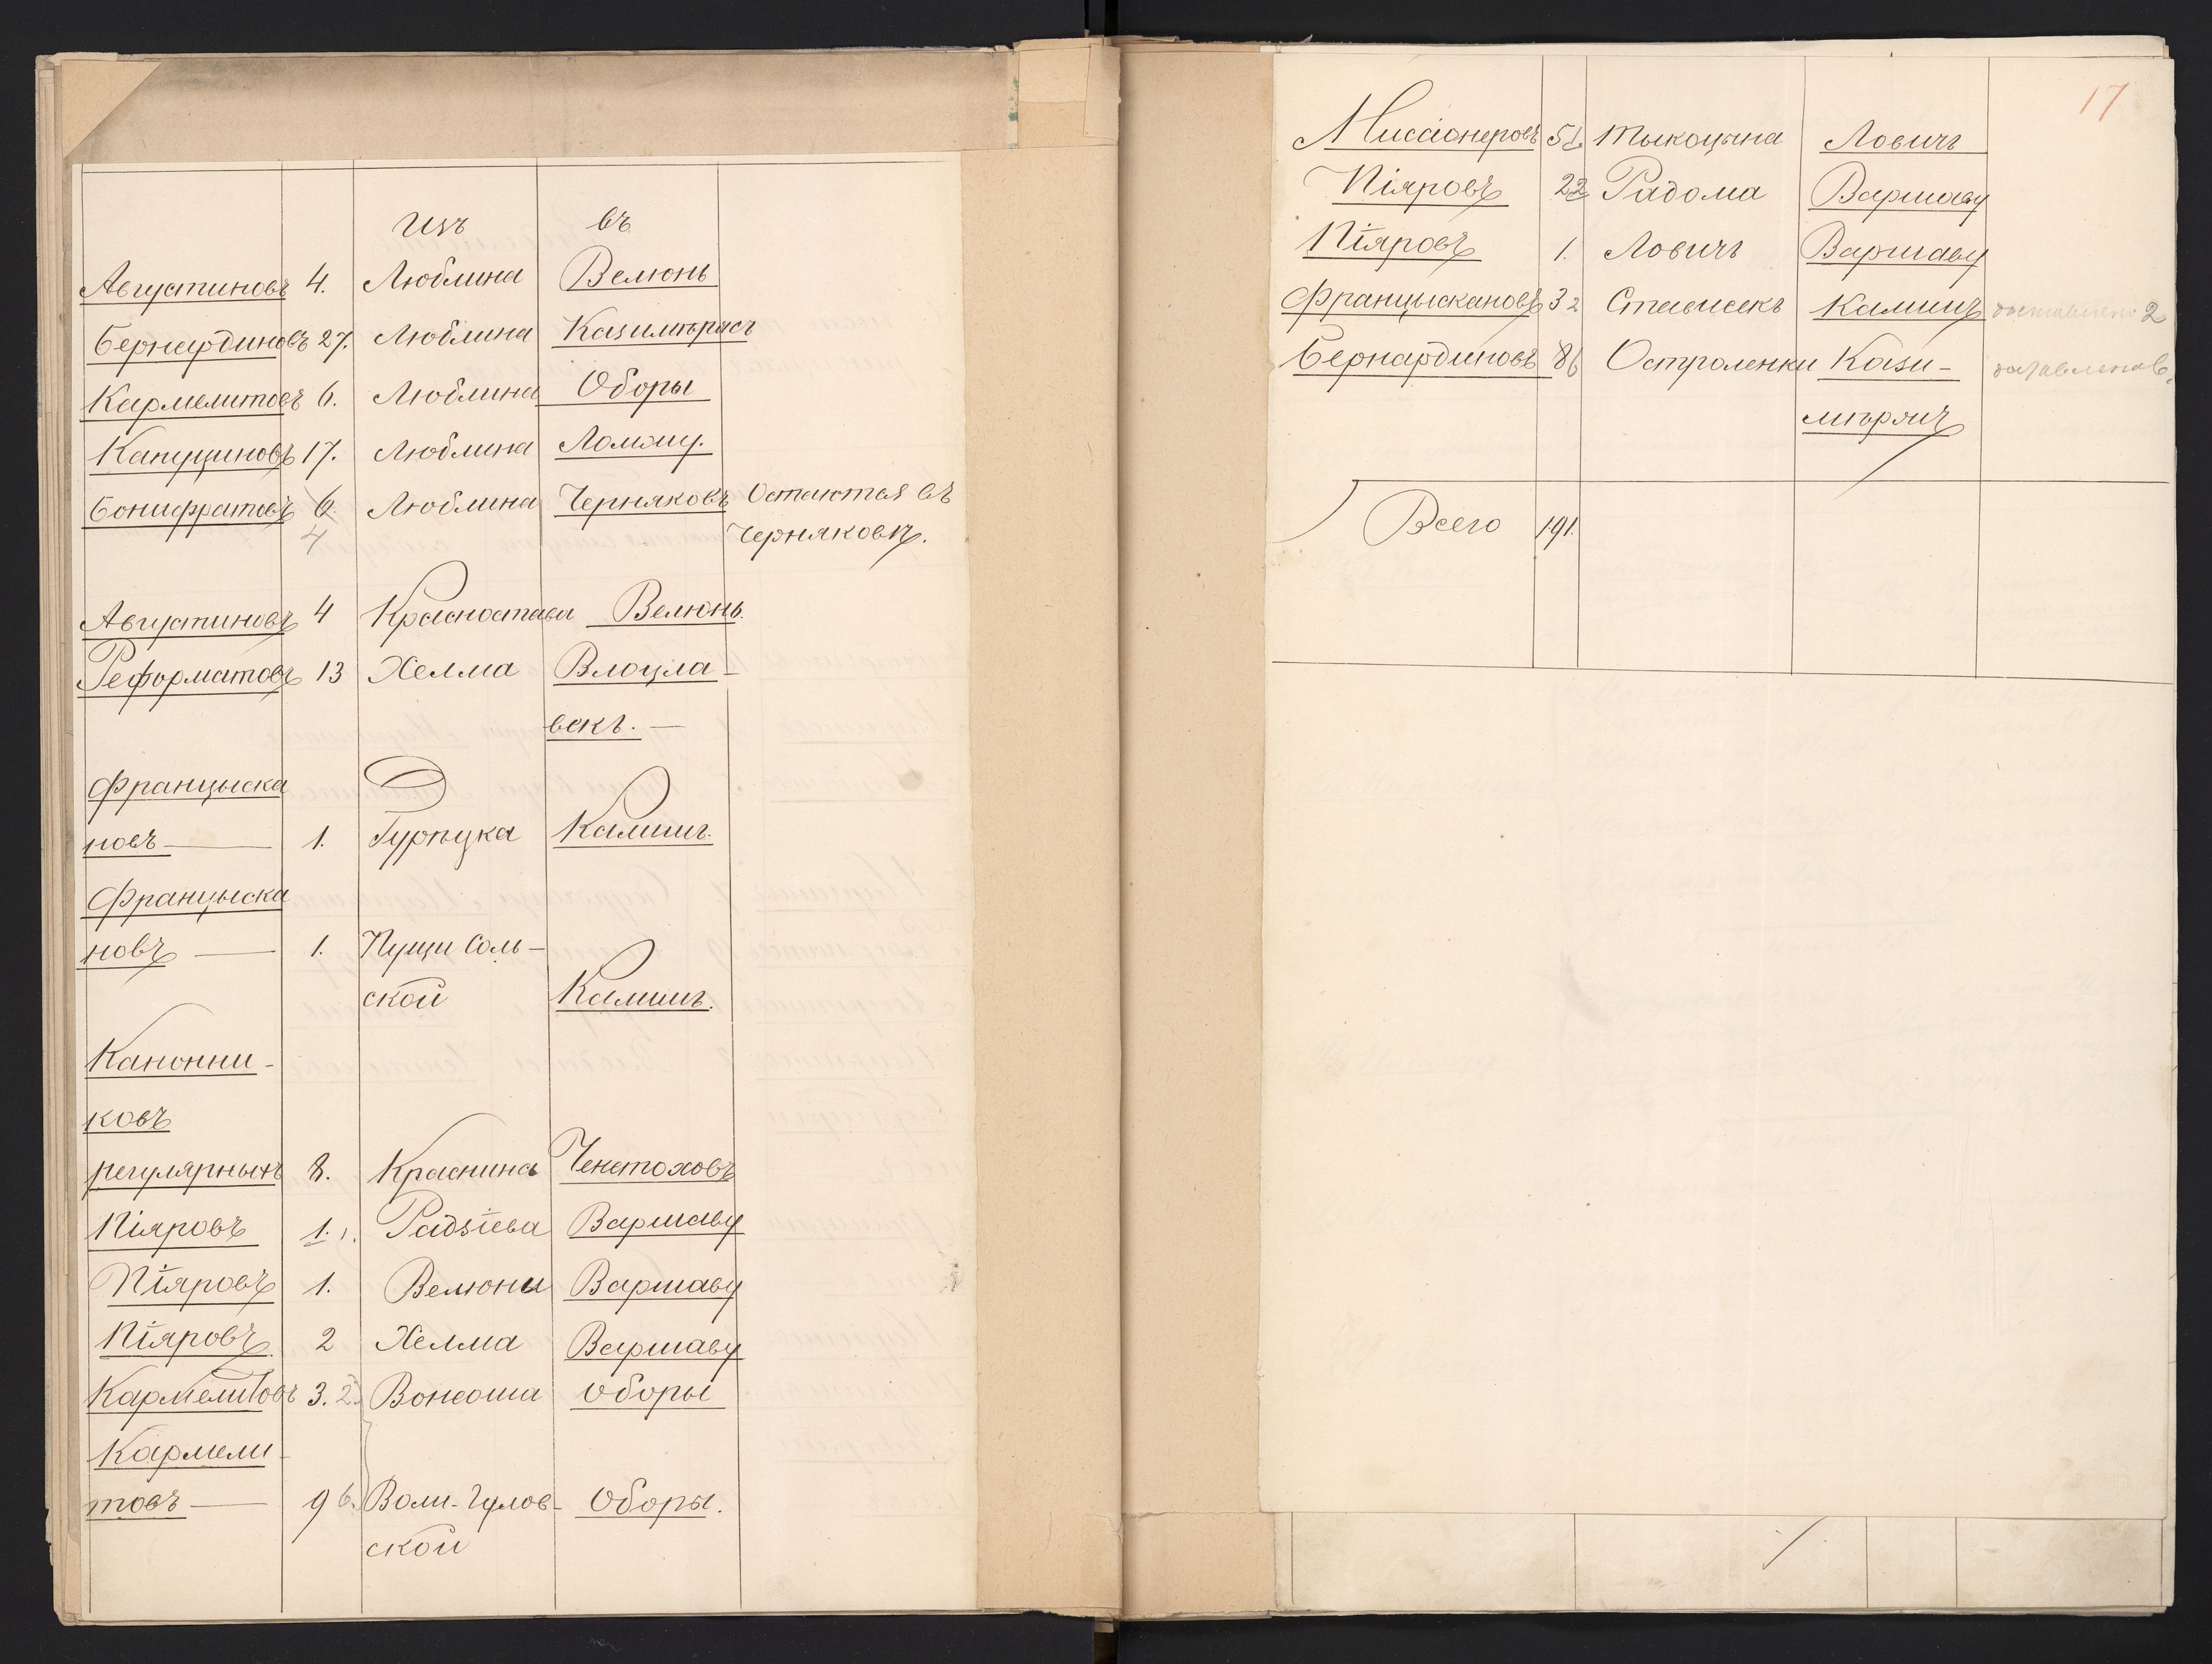 Изъ въ
Августиновъ 4. Люблина Велюнь
Бернардиновъ 27. Люблина Казимѣржъ
Кармелитовъ 6. Люблина Оборы
Капуциновъ 17. Люблина Ломжу.
Бонифратовъ 6 Люблина Черняковъ Остаются въ
4 Черняковѣ.
Августиновъ 4 Красностава Велюнь.
Реформатовъ 13 Хелма Влоцла-
векъ. —
Францыска
новъ — 1. Гурецка Калишъ.
Францыска
новъ — 1. Пущи Соль-
ской Калишъ.
Канонни-
ковъ
регулярныхъ 8. Краснина Ченстоховъ
Піяровъ 1. 1. Радзіева Варшаву
Піяровъ 1. Велюни Варшаву
Піяровъ 2 Хелма Варшаву
Кармелитовъ 3. 2. Вонсоша Оборы
Кармели-
товъ — 9 6. Воли-Гулов- Оборы.
ской
17
Миссіонеровъ 51. Тыкоцина Ловичъ
Піяровъ 22 Радома Варшаву
Піяровъ 1. Ловичъ Варшаву
Францыскановъ 32 Стависекъ Калишъ 2
Бернардиновъ 86 Остроленки Кази-
мѣржъ
Всего 191.